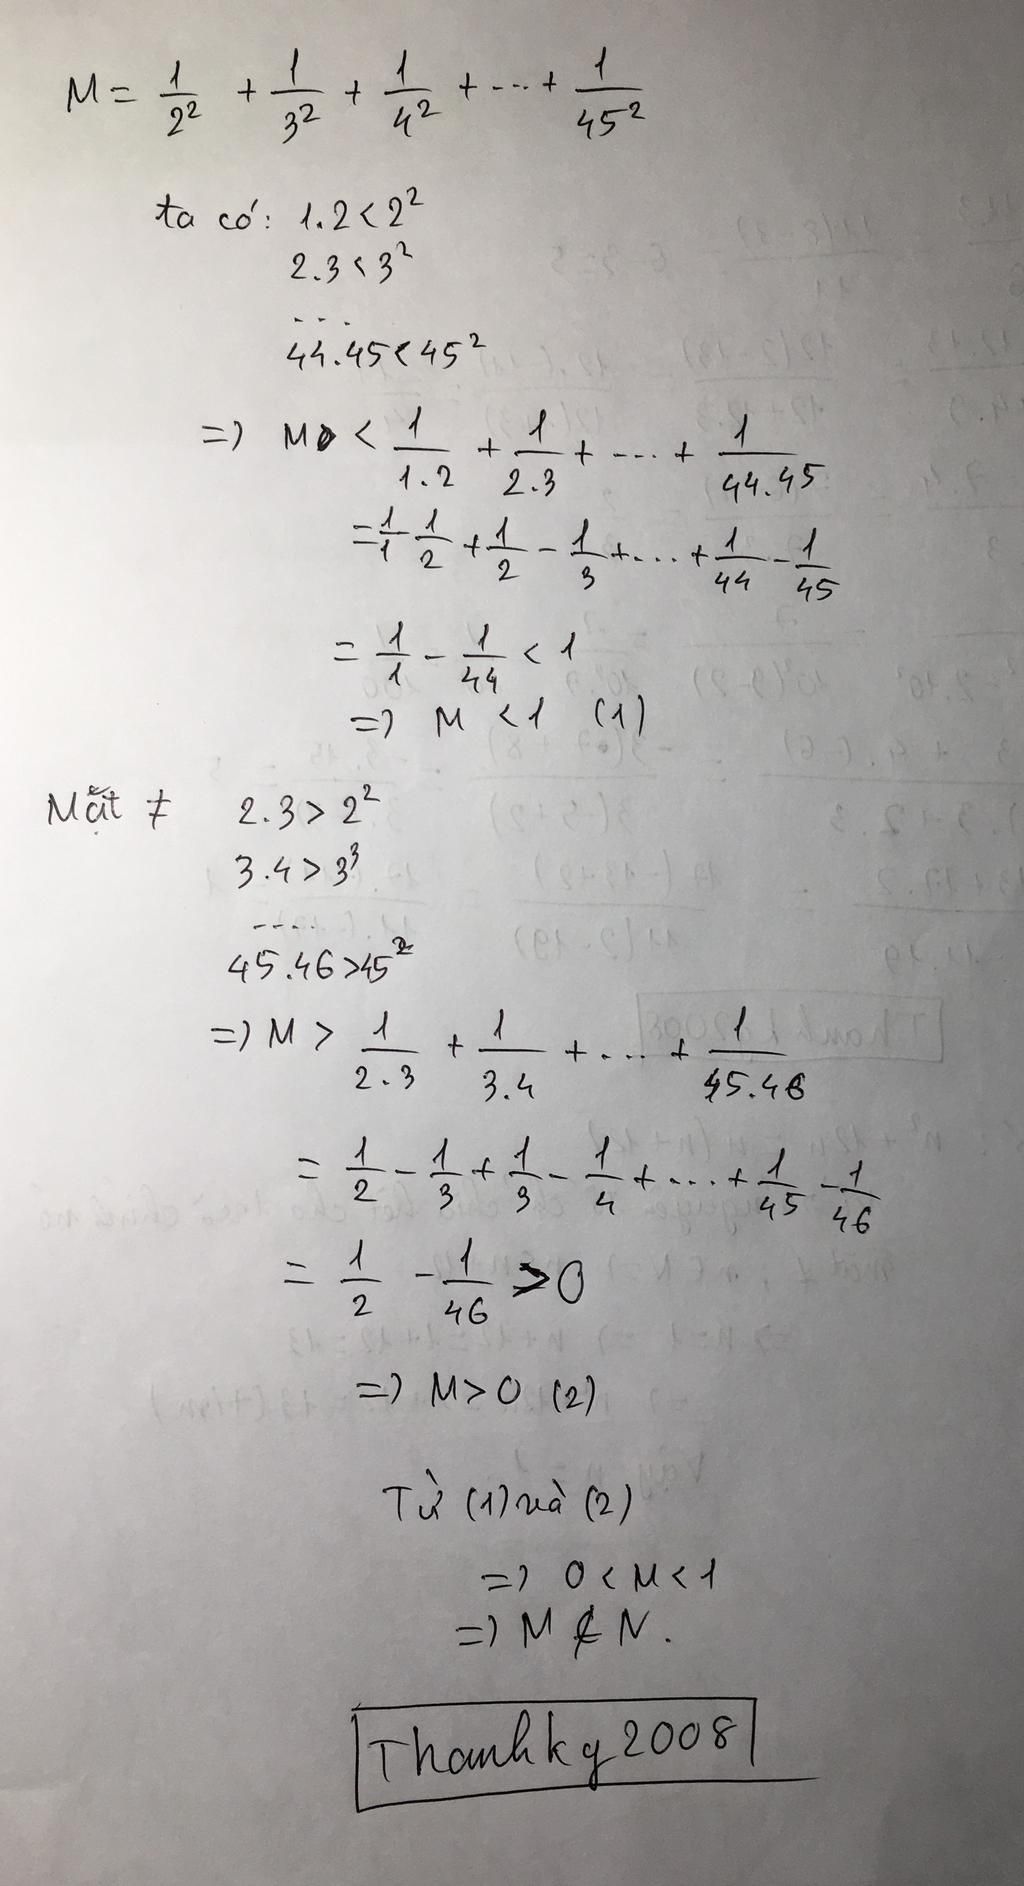 M = 1/2² + 1/3² + 1/4² + ... + 1/45²
ta có: 1.2 < 2²
2.3 < 3²
...
44.45 < 45²
=> M < 1/1.2 + 1/2.3 + ... + 1/44.45
= 1/1 - 1/2 + 1/2 - 1/3 + ... + 1/44 - 1/45
= 1/1 - 1/44 < 1
=> M < 1 (1)
Mặt ≠ 2.3 > 2²
3.4 > 3³
....
45.46 > 45²
=> M > 1/2.3 + 1/3.4 + ... + 1/45.46
= 1/2 - 1/3 + 1/3 - 1/4 + ... + 1/45 - 1/46
= 1/2 - 1/46 > 0
=> M > 0 (2)
Từ (1) và (2)
=> 0 < M < 1
=> M ∉ N.
Thanhkg2008